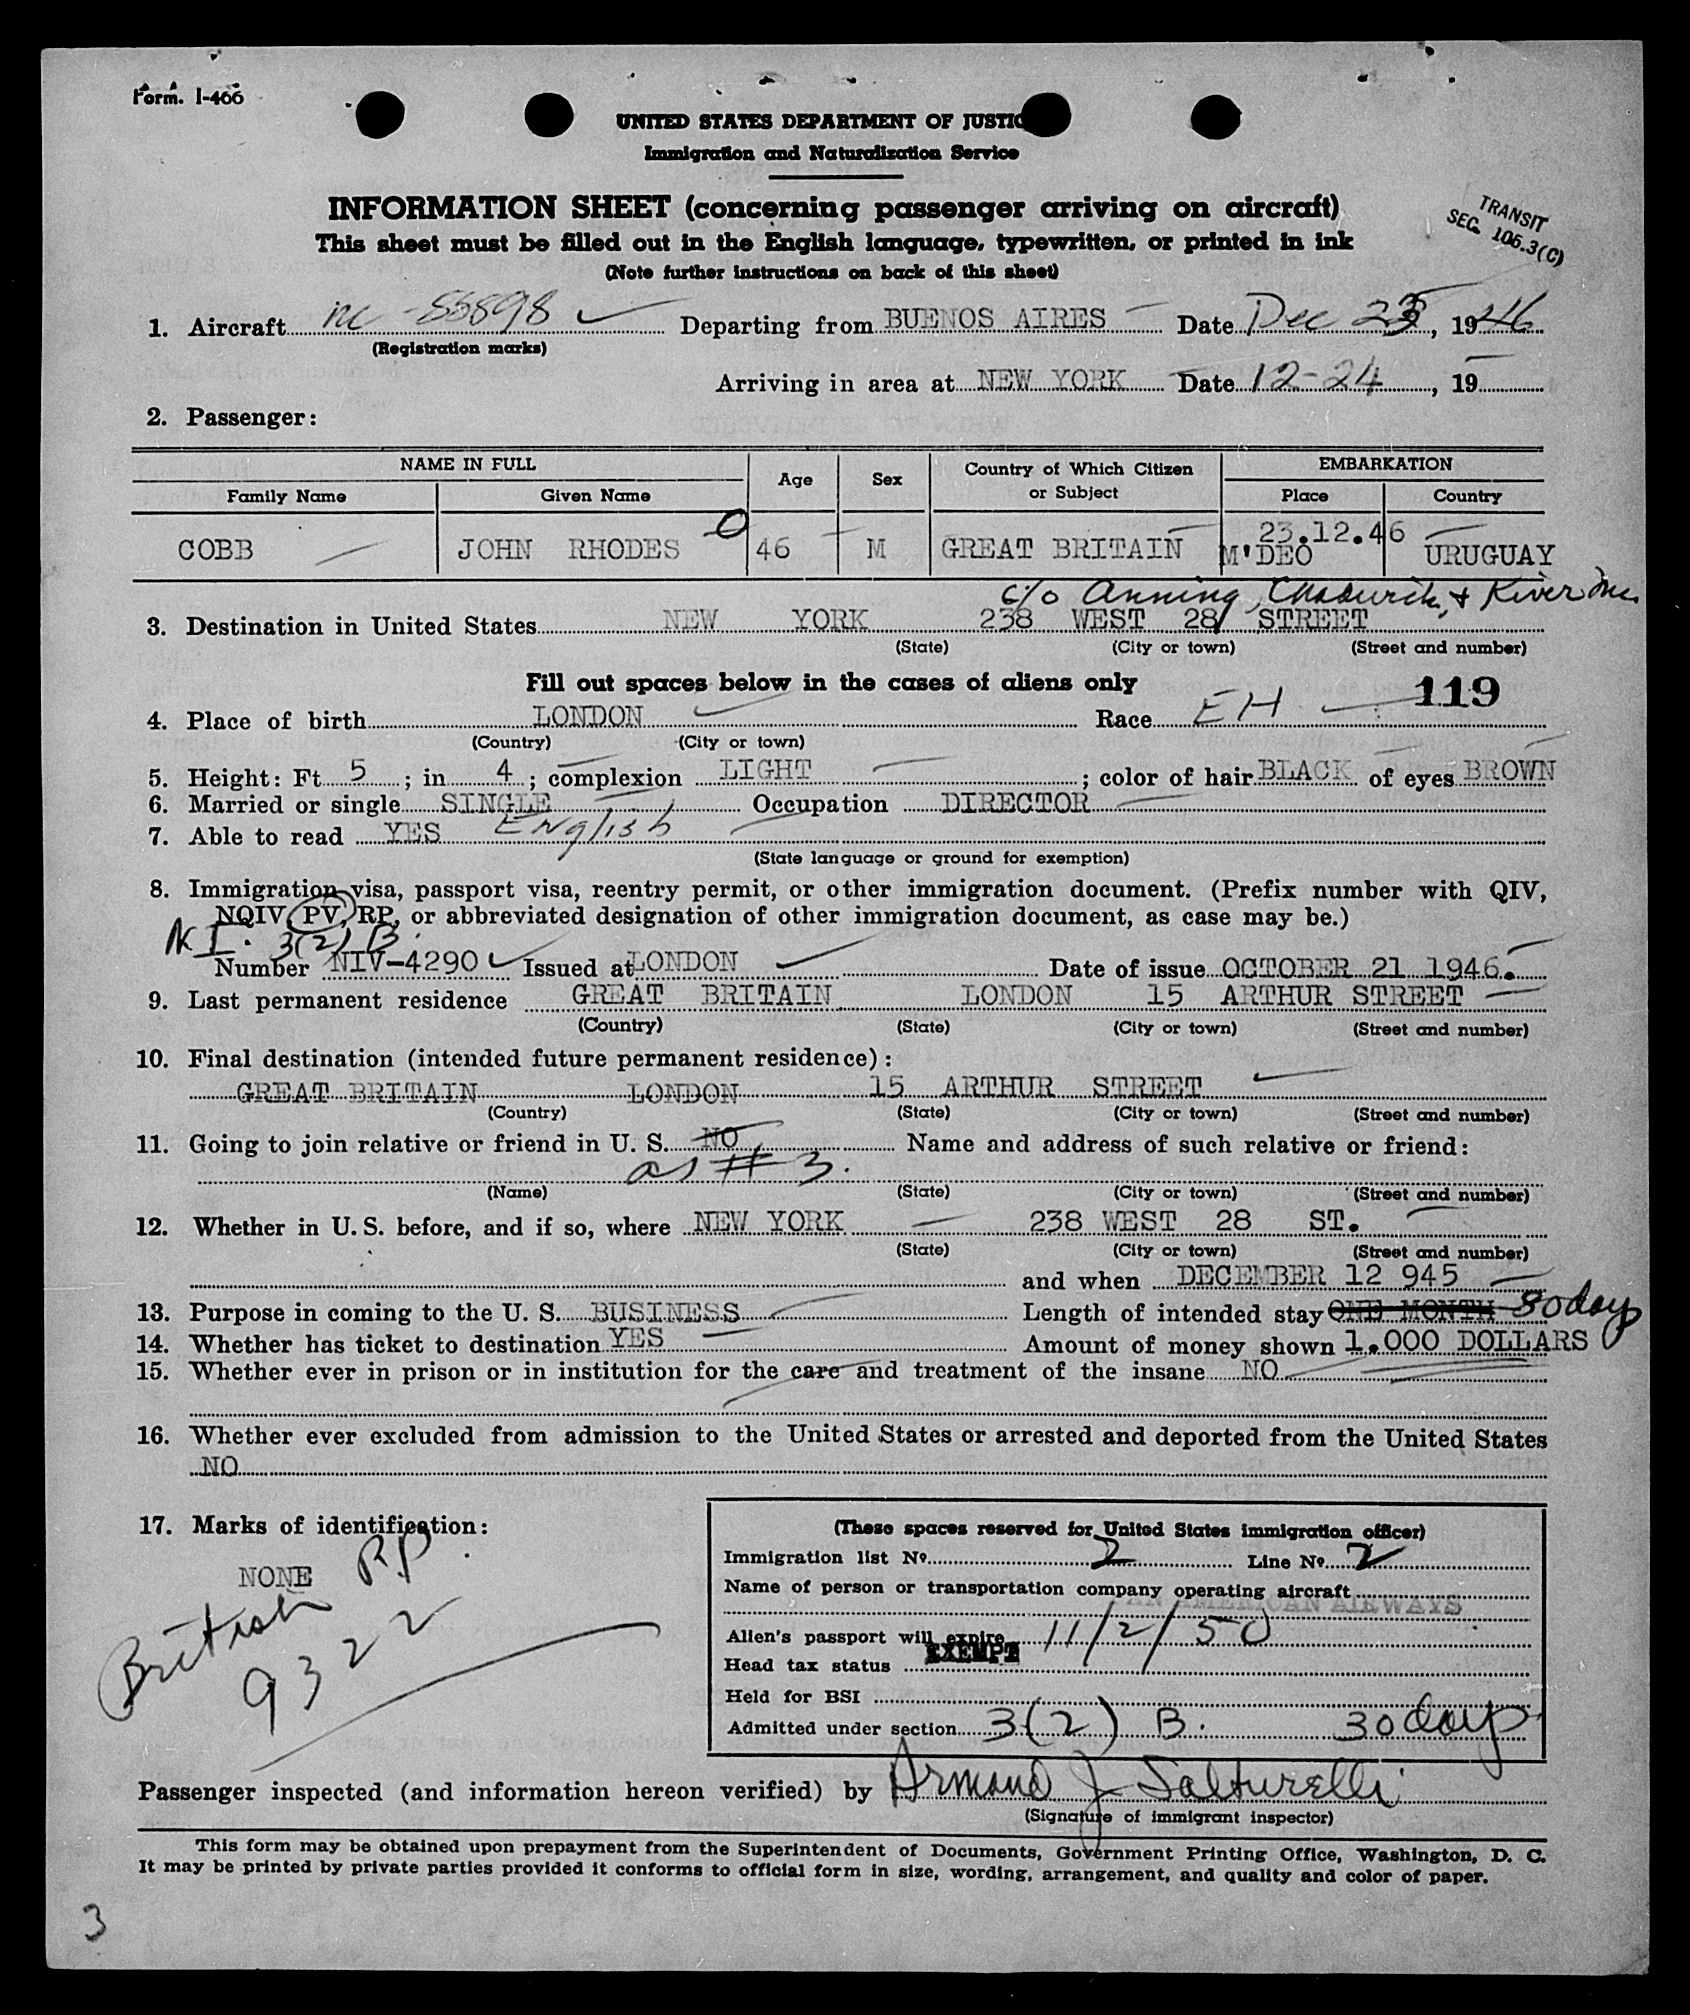 Form. I-466
UNITED STATES DEPARTMENT OF JUSTIC
Immigration and Naturalization Service
INFORMATION SHEET (concerning passenger arriving on aircraft)
This sheet must be filled out in the English language, typewritten, or printed in ink
(Note further instructions on back of this sheet)
TRANSIT
SEC. 106.3(C)
1. Aircraft NC-88898 Departing from BUENOS AIRES Date Dec 23, 1946
(Registration marks)
Arriving in area at NEW YORK Date 12-24, 19
2. Passenger:
NAME IN FULL Age Sex Country of Which Citizen or Subject EMBARKATION
Family Name Given Name Place Country
23.12.46
COBB JOHN RHODES 46 M GREAT BRITAIN M'DEO URUGUAY
c/o Anning, Chadwick, & Kiver Inc.
3. Destination in United States NEW YORK 238 WEST 28 STREET
(State) (City or town) (Street and number)
Fill out spaces below in the cases of aliens only
119
4. Place of birth LONDON Race EH
(Country) (City or town)
5. Height: Ft. 5; in 4; complexion LIGHT; color of hair BLACK of eyes BROWN
6. Married or single SINGLE Occupation DIRECTOR
7. Able to read YES English
(State language or ground for exemption)
8. Immigration visa, passport visa, reentry permit, or other immigration document. (Prefix number with QIV,
NQIV, PV, RP, or abbreviated designation of other immigration document, as case may be.)
N.I. 3(2) B.
Number NIV-4290 Issued at LONDON Date of issue OCTOBER 21 1946.
9. Last permanent residence GREAT BRITAIN LONDON 15 ARTHUR STREET
(Country) (State) (City or town) (Street and number)
10. Final destination (intended future permanent residence):
GREAT BRITAIN LONDON 15 ARTHUR STREET
(Country) (State) (City or town) (Street and number)
11. Going to join relative or friend in U. S. NO Name and address of such relative or friend:
as # 3.
(Name) (State) (City or town) (Street and number)
12. Whether in U. S. before, and if so, where NEW YORK 238 WEST 28 ST.
(State) (City or town) (Street and number)
and when DECEMBER 12 945
13. Purpose in coming to the U. S. BUSINESS Length of intended stay ONE MONTH 30 days
14. Whether has ticket to destination YES Amount of money shown 1.000 DOLLARS
15. Whether ever in prison or in institution for the care and treatment of the insane NO
16. Whether ever excluded from admission to the United States or arrested and deported from the United States
NO
17. Marks of identification:
NONE
British P.P.
9322
(These spaces reserved for United States immigration officer)
Immigration list No. 2 Line No. 2
Name of person or transportation company operating aircraft
PAN AMERICAN AIRWAYS
Alien's passport will expire 11/2/50
Head tax status EXEMPT
Held for BSI
Admitted under section 3(2) B. 30 days
Passenger inspected (and information hereon verified) by Armand J Salturelli
(Signature of immigrant inspector)
This form may be obtained upon prepayment from the Superintendent of Documents, Government Printing Office, Washington, D. C.
It may be printed by private parties provided it conforms to official form in size, wording, arrangement, and quality and color of paper.
3